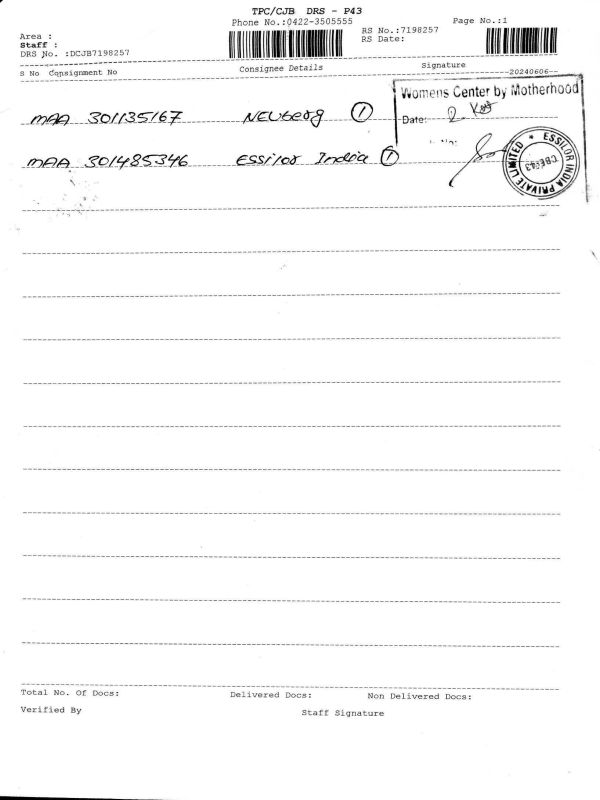 TPC/CJB DRS - P43
Phone No.:0422-3505555
Page No.:1
Area :
RS No.:7198257
Staff :
RS Date:
DRS No. :DCJB7198257
S No Consignment No Consignee Details Signature
20240606
Womens Center by Motherhood
MAA 301135167 NEUberg 1
Date:
MAA 301485346 Essilor India 1
ESSILOR INDIA PRIVATE LIMITED *
CBE43
Total No. Of Docs: Delivered Docs: Non Delivered Docs:
Verified By Staff Signature